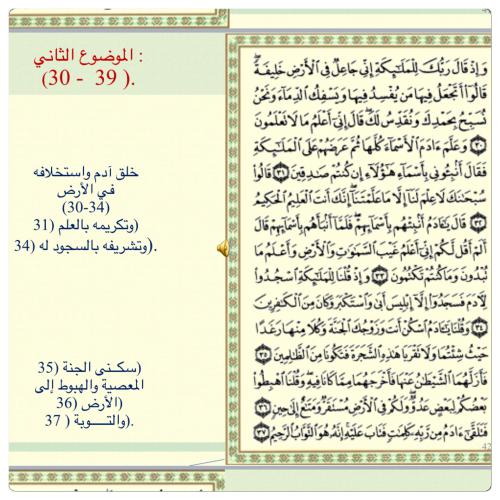 الموضوع الثاني :
(30 - 39 ).
خلق آدم واستخلافه
في الأرض
(30-34)
وتكريمه بالعلم ( 31
وتشريفه بالسجود له ( 34).
سكنى الجنة ( 35)
المعصية والهبوط إلى
الأرض ( 36)
والتـــوبة ( 37 ).
وَإِذْ قَالَ رَبُّكَ لِلْمَلَٰٓئِكَةِ إِنِّى جَاعِلٌ فِى ٱلْأَرْضِ خَلِيفَةً
قَالُوٓا۟ أَتَجْعَلُ فِيهَا مَن يُفْسِدُ فِيهَا وَيَسْفِكُ ٱلدِّمَآءَ وَنَحْنُ
نُسَبِّحُ بِحَمْدِكَ وَنُقَدِّسُ لَكَ قَالَ إِنِّىٓ أَعْلَمُ مَا لَا تَعْلَمُونَ
٣٠ وَعَلَّمَ ءَادَمَ ٱلْأَسْمَآءَ كُلَّهَا ثُمَّ عَرَضَهُمْ عَلَى ٱلْمَلَٰٓئِكَةِ
فَقَالَ أَنۢبِـُٔونِى بِأَسْمَآءِ هَٰٓؤُلَآءِ إِن كُنتُمْ صَٰدِقِينَ ٣١ قَالُوا۟
سُبْحَٰنَكَ لَا عِلْمَ لَنَآ إِلَّا مَا عَلَّمْتَنَآ إِنَّكَ أَنتَ ٱلْعَلِيمُ ٱلْحَكِيمُ
٣٢ قَالَ يَٰٓـَٔادَمُ أَنۢبِئْهُم بِأَسْمَآئِهِمْ فَلَمَّآ أَنۢبَأَهُم بِأَسْمَآئِهِمْ قَالَ
أَلَمْ أَقُل لَّكُمْ إِنِّىٓ أَعْلَمُ غَيْبَ ٱلسَّمَٰوَٰتِ وَٱلْأَرْضِ وَأَعْلَمُ مَا
تُبْدُونَ وَمَا كُنتُمْ تَكْتُمُونَ ٣٣ وَإِذْ قُلْنَا لِلْمَلَٰٓئِكَةِ ٱسْجُدُوا۟
لِـَٔادَمَ فَسَجَدُوٓا۟ إِلَّآ إِبْلِيسَ أَبَىٰ وَٱسْتَكْبَرَ وَكَانَ مِنَ ٱلْكَٰفِرِينَ
٣٤ وَقُلْنَا يَٰٓـَٔادَمُ ٱسْكُنْ أَنتَ وَزَوْجُكَ ٱلْجَنَّةَ وَكُلَا مِنْهَا رَغَدًا
حَيْثُ شِئْتُمَا وَلَا تَقْرَبَا هَٰذِهِ ٱلشَّجَرَةَ فَتَكُونَا مِنَ ٱلظَّٰلِمِينَ ٣٥
فَأَزَلَّهُمَا ٱلشَّيْطَٰنُ عَنْهَا فَأَخْرَجَهُمَا مِمَّا كَانَا فِيهِ وَقُلْنَا ٱهْبِطُوا۟
بَعْضُكُمْ لِبَعْضٍ عَدُوٌّ وَلَكُمْ فِى ٱلْأَرْضِ مُسْتَقَرٌّ وَمَتَٰعٌ إِلَىٰ حِينٍ ٣٦
فَتَلَقَّىٰٓ ءَادَمُ مِن رَّبِّهِۦ كَلِمَٰتٍ فَتَابَ عَلَيْهِ إِنَّهُۥ هُوَ ٱلتَّوَّابُ ٱلرَّحِيمُ ٣٧
42